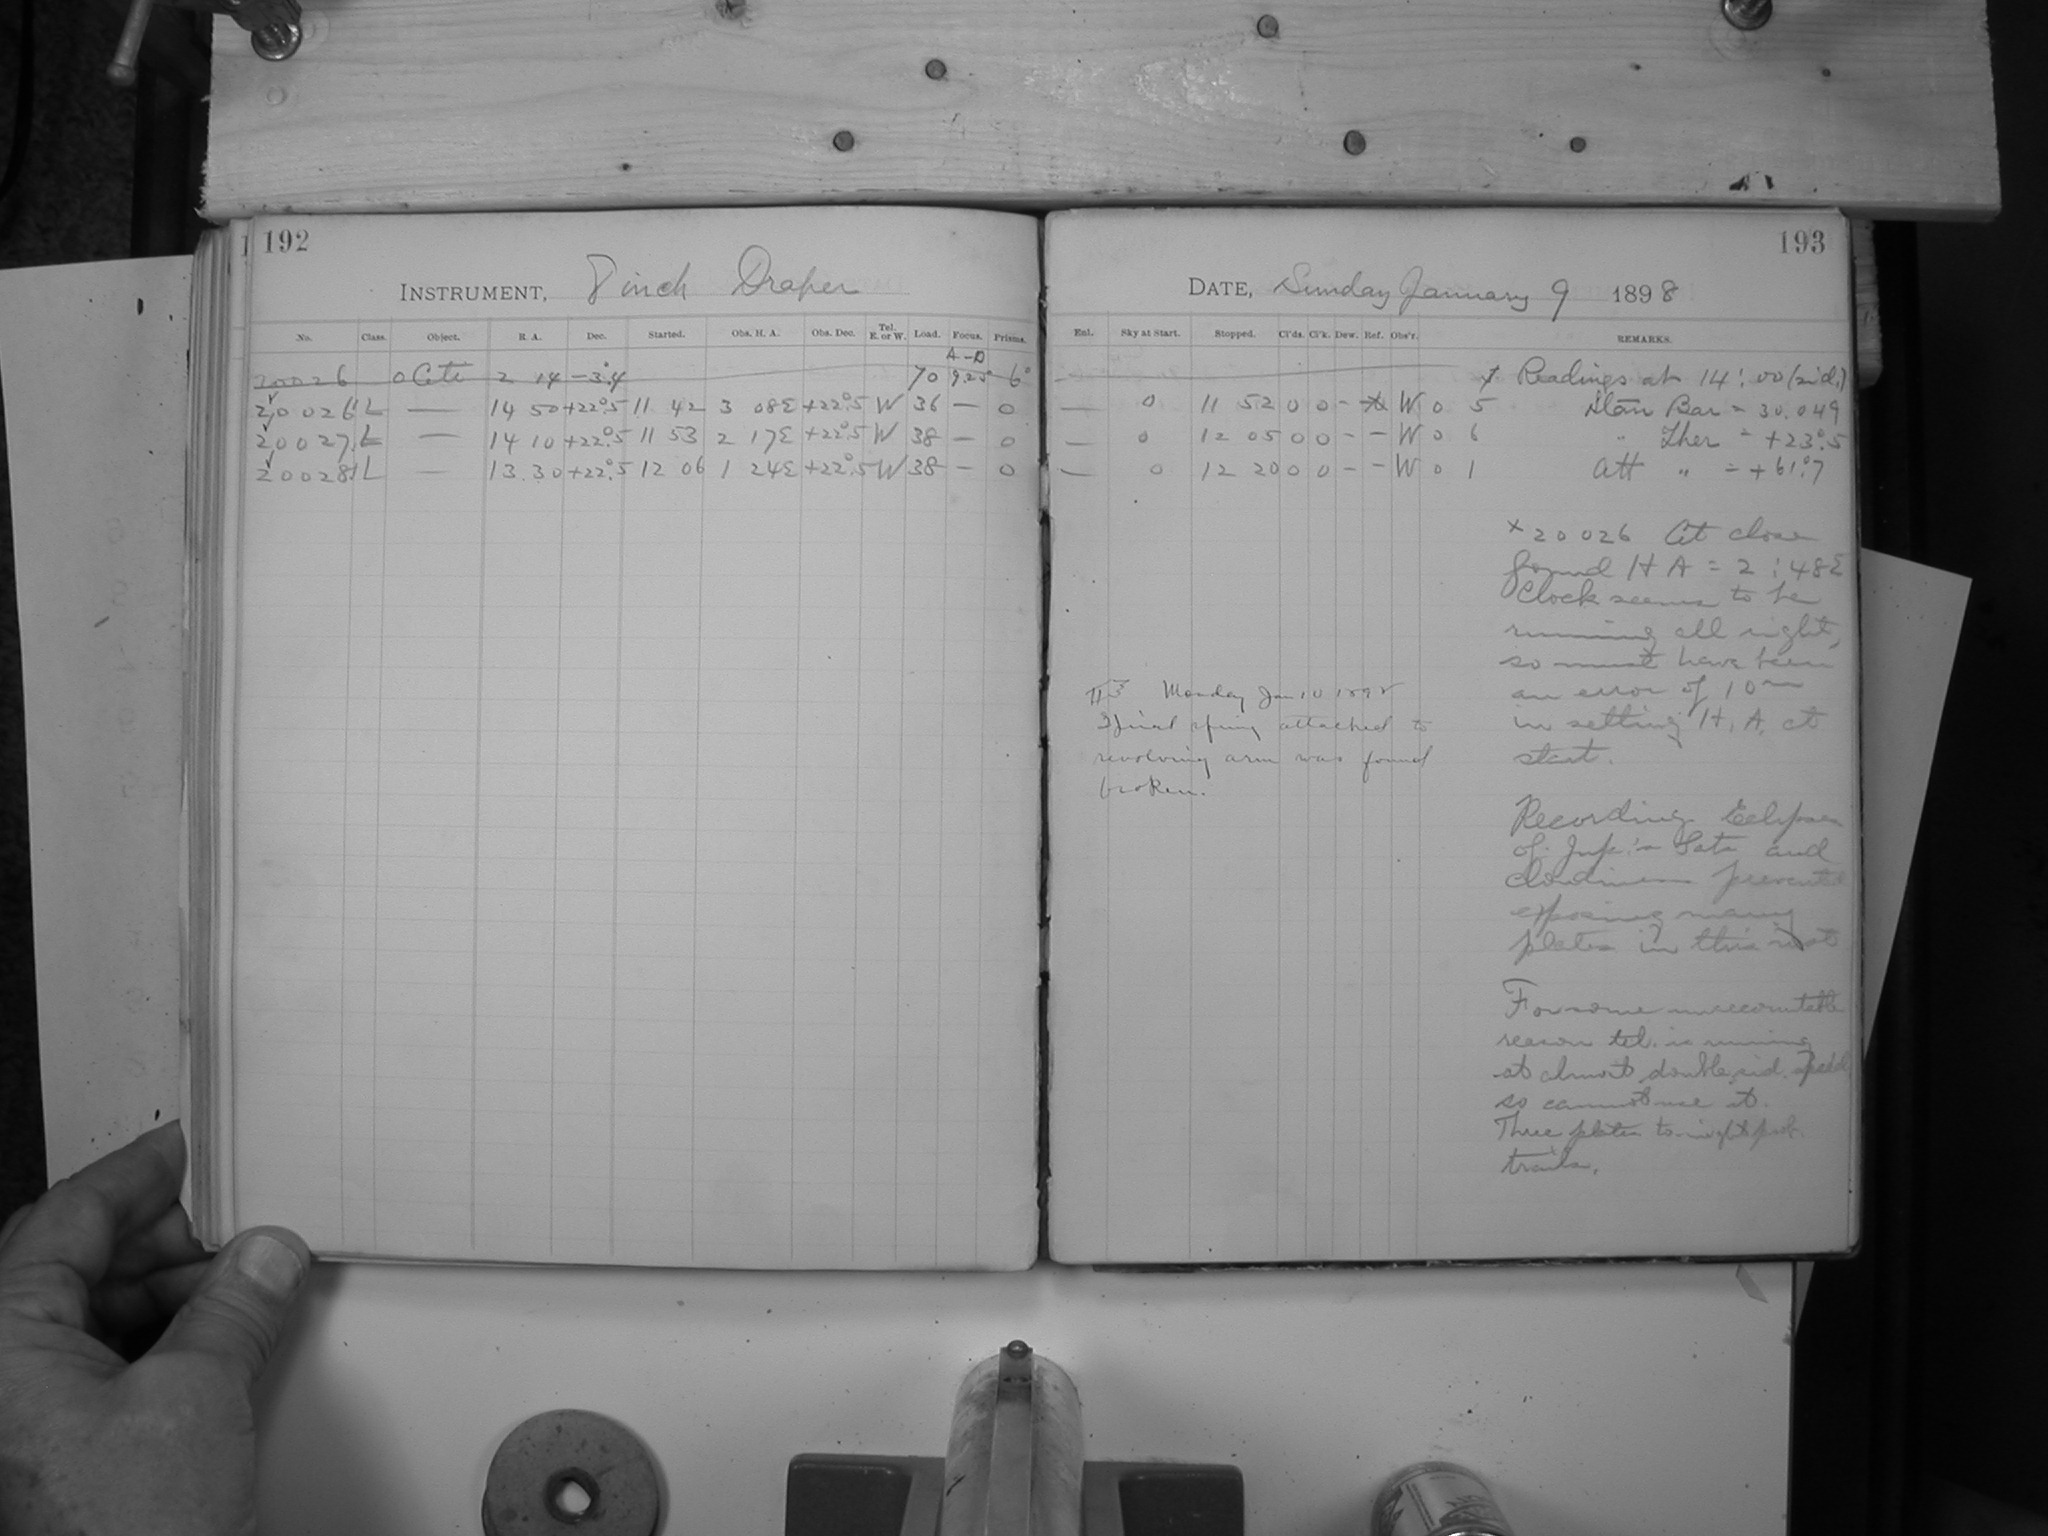 192
INSTRUMENT, 8 inch Draper
No. Class. Object. R. A. Dec. Started. Obs. H. A. Obs. Dec. Tel. E. or W. Load. Focus. Prisms.
A-D
20026 o Ceti 2 14 -3°.4 70 9.25 6°
20026 L — 14 50 +22°.5 11 42 3 08E +22°.5 W 36 — 0
20027 L — 14 10 +22°.5 11 53 2 17E +22°.5 W 38 — 0
20028 L — 13.30 +22°.5 12 06 1 24E +22°.5 W 38 — 0
193
DATE, Sunday January 9 1898
Enl. Sky at Start. Stopped. Cl'ds. Cl'k. Dew. Ref. Obs'r. REMARKS.
— 0 11 52 0 0 - W 0 5
— 0 12 05 0 0 - - W 0 6
— 0 12 20 0 0 - - W 0 1
Readings at 14:00 (sid.)
Bar = 30.049
" Ther = +23°.5
Att " = +61°.7
x 20026 At close
found H A = 2:48E
Clock seems to be
running all right,
so must have been
an error of 10m
in setting H. A. at
start.
Recording Eclipses
of Jup.'s Sats and
cloudiness prevented
exposing many
plates in this
For some unaccountable
reason tel. is running
at almost double sid.
so cannot use it.
Three plates to-night prob.
trails.
Monday Jan 10 1898
I find spring attached to
revolving arm was found
broken.